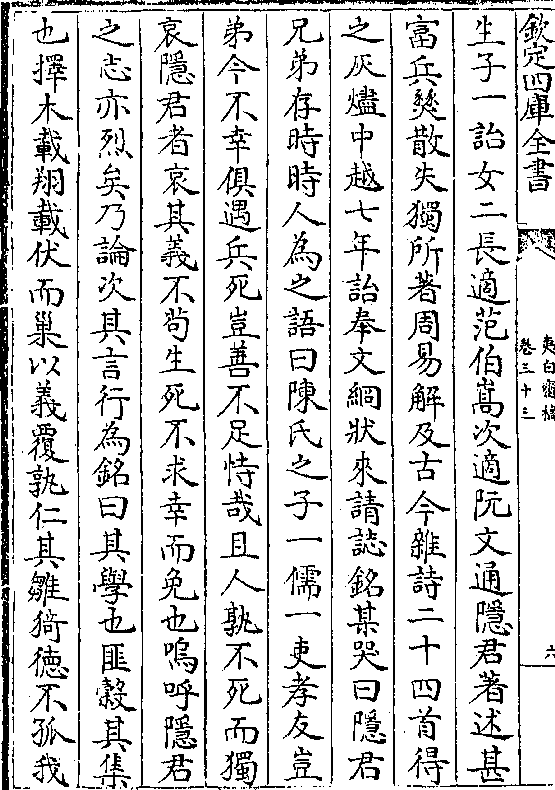 欽定四庫全書
夷白齋稿
卷三十三
六
生子一詒女二長適范伯嵩次適阮文通隱君著述甚
富兵燹散失獨所著周易解及古今雜詩二十四首得
之灰燼中越七年詒奉文綱狀來請誌銘某哭曰隱君
兄弟存時時人為之語曰陳氏之子一儒一吏孝友豈
弟今不幸俱遇兵死豈善不足恃哉且人孰不死而獨
哀隱君者哀其義不茍生死不求幸而免也嗚呼隱君
之志亦烈矣乃論次其言行為銘曰其學也匪榖其集
也擇木載翔載伏而巢以義覆孰仁其雛猗德不孤我